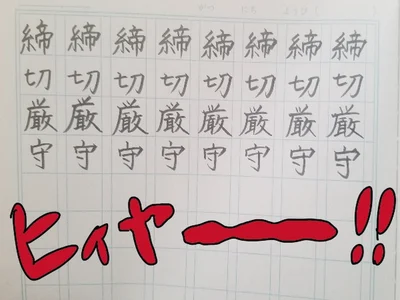 締切厳守
締切厳守
締切厳守
締切厳守
締切厳守
締切厳守
締切厳守
締切厳守
ヒィヤー!!